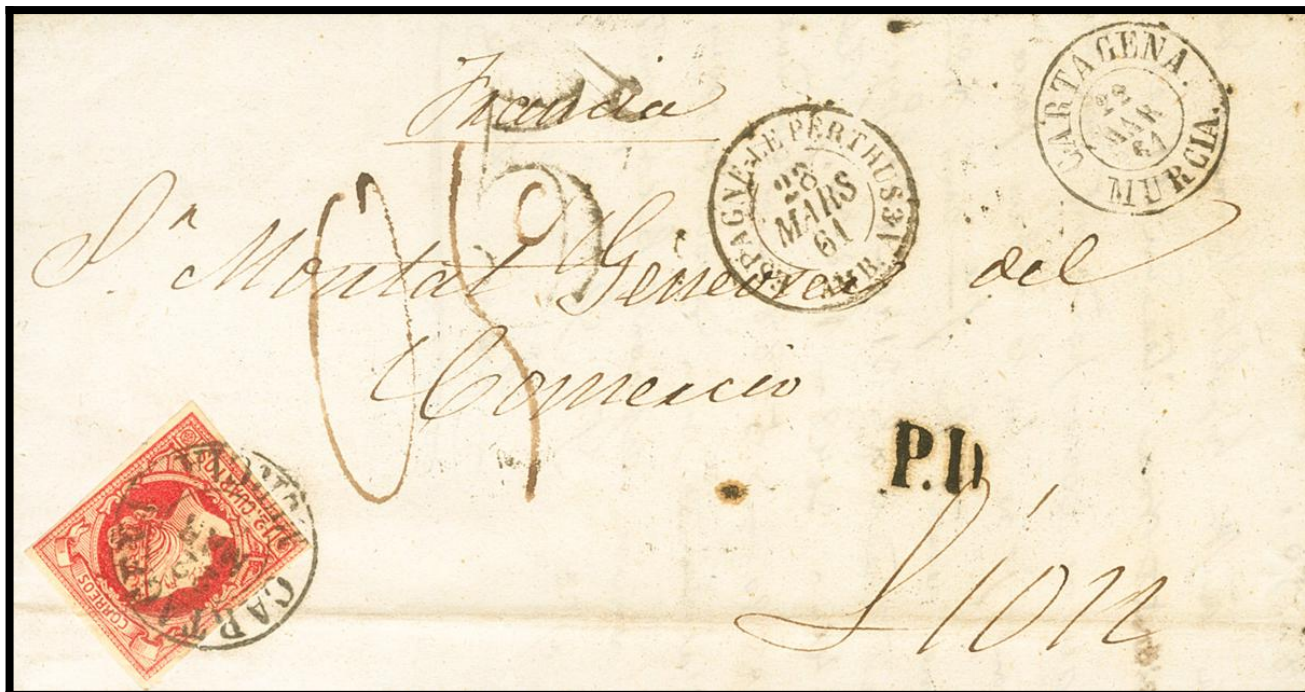 Francia
CARTAGENA.
22
MAR
61
MURCIA.
ESPAGNE-LE PERTHUS
28
MARS
61
AMB.
Sn. Montal del
Comercio
P.D
Lión
CORREOS
12 CUARTOS
CARTAGENA